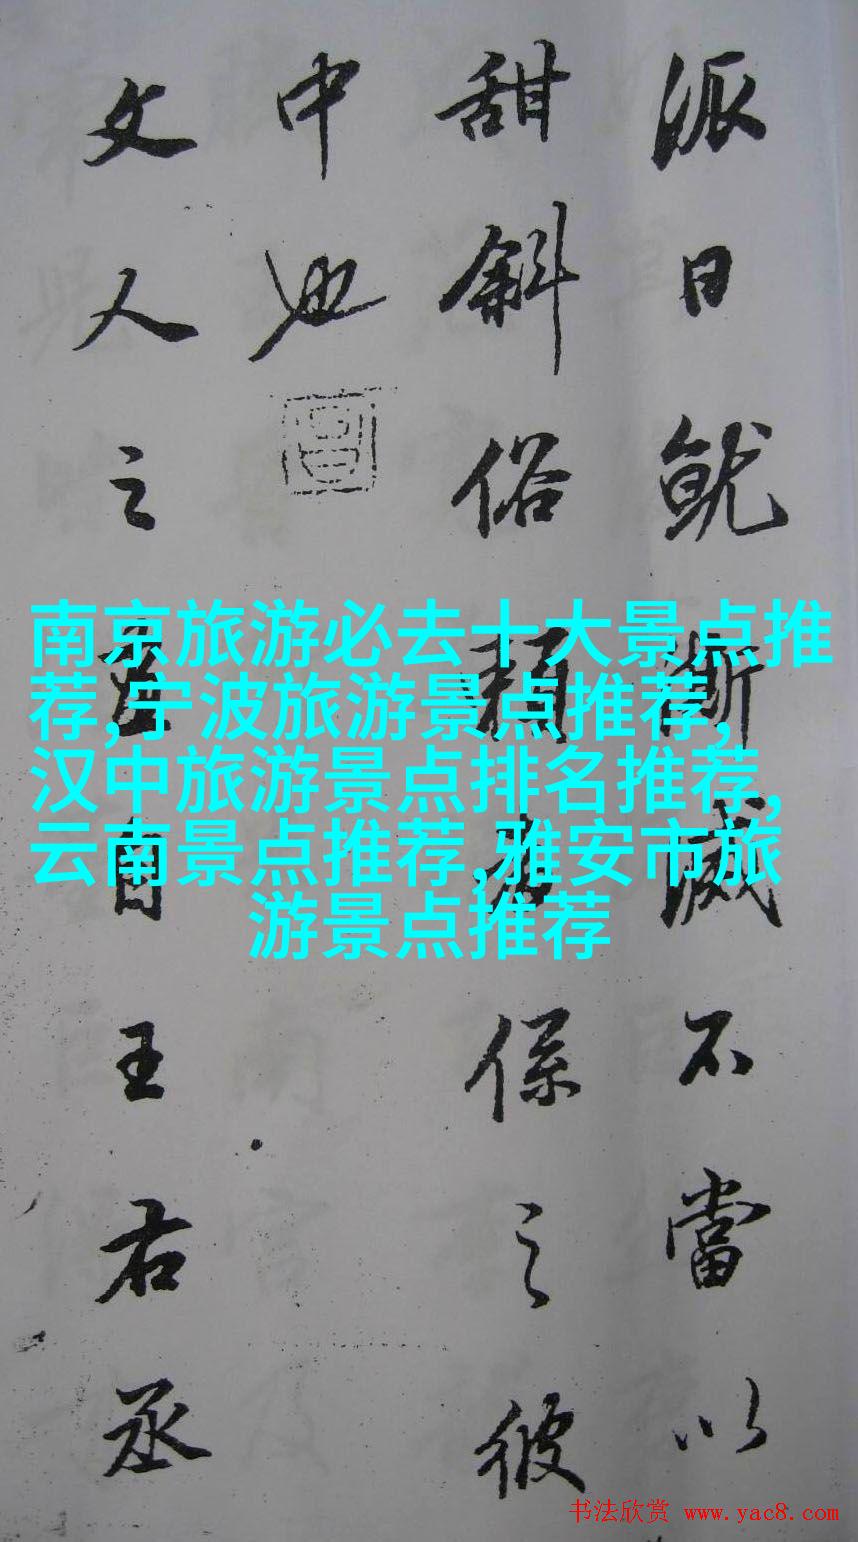 派日就澌滅不當以
甜斜俗賴者係之彼
中也
文人之畫自王右丞
南京旅游必去十大景点推
荐,宁波旅游景点推荐,
汉中旅游景点排名推荐,
云南景点推荐,雅安市旅
游景点推荐
书法欣赏 www.yac8.com